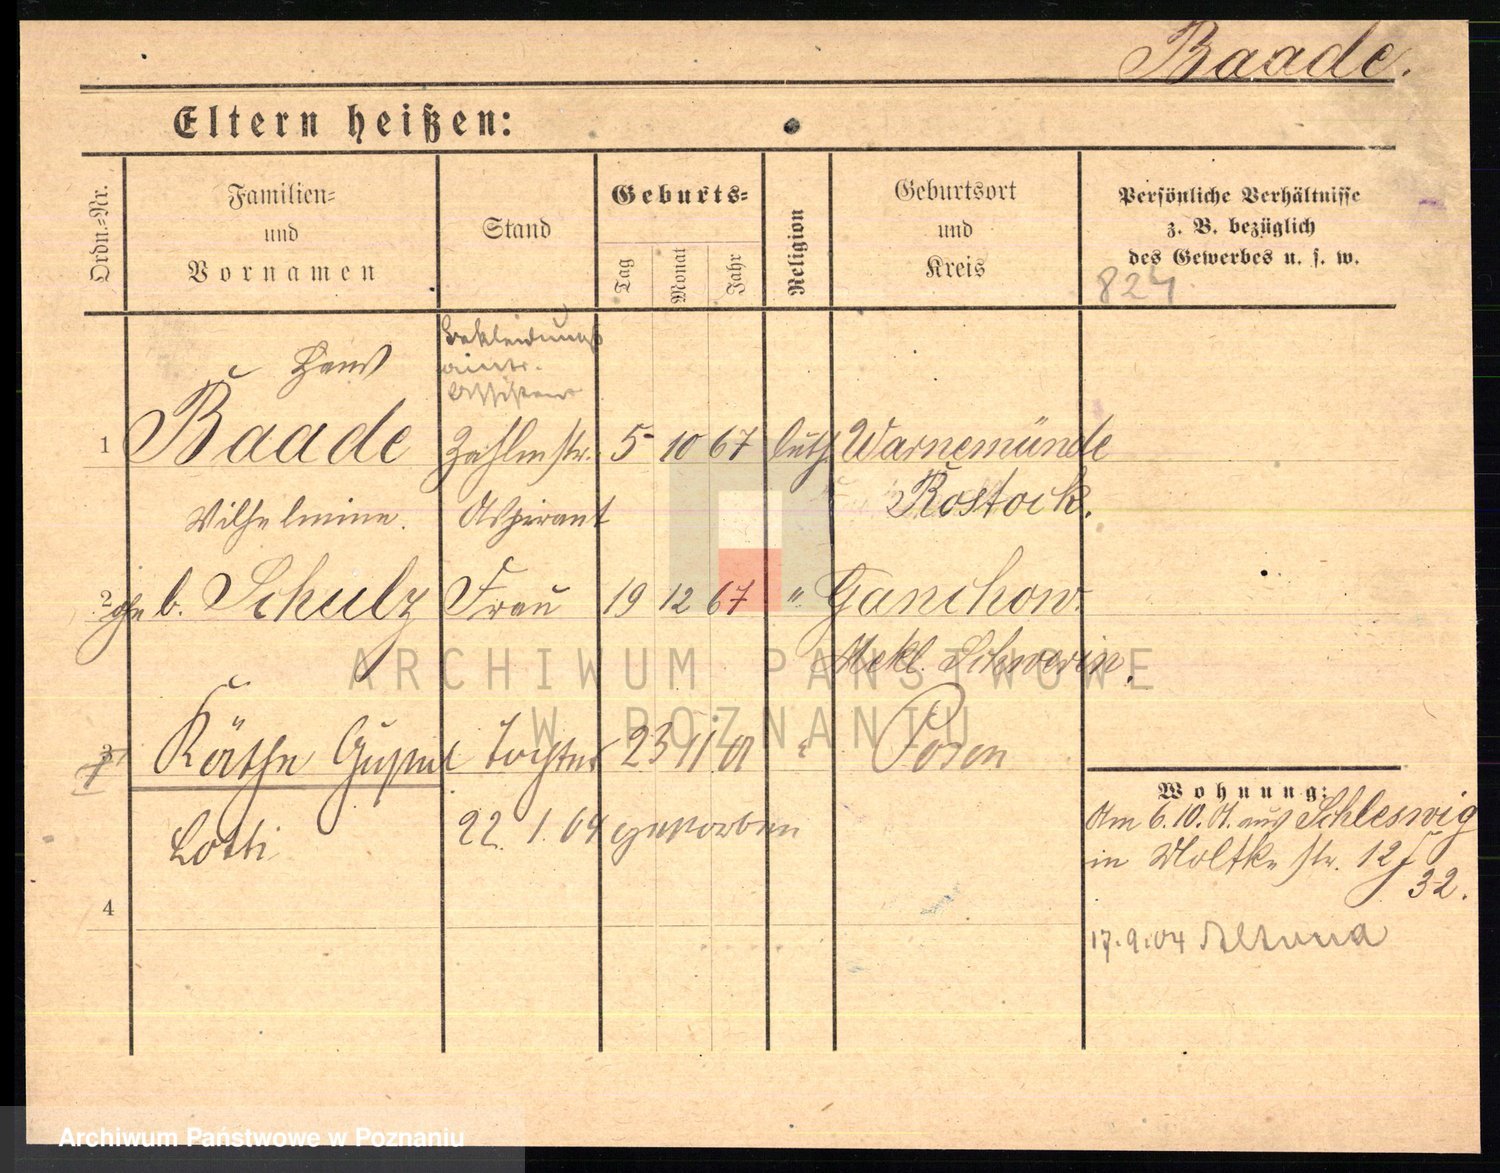 Baade.
Eltern heißen:
Ordn.=Nr.
Familien=
und
Vornamen
Stand
Geburts=
Tag
Monat
Jahr
Religion
Geburtsort
und
Kreis
Persönliche Verhältnisse
z. B. bezüglich
des Gewerbes u. s. w.
824
Bekleidungs
amts-
Assistent
Hans
1 Baade Zahlmstr. 5 10 67 luth Warnemünde
Aspirant Rostock.
Wilhelmine.
2 geb. Schulz Frau 19 12 67 " Ganschow
Mekl. Schwerin.
3 Käthe Gustel Tochter 23 11 01 " Posen
Lotti 22. 1. 04 gestorben
4
Wohnung:
Am 6.10.01. aus Schleswig
in Moltke str. 12
32.
17.9.04 Altona
ARCHIWUM PAŃSTWOWE
W POZNANIU
Archiwum Państwowe w Poznaniu